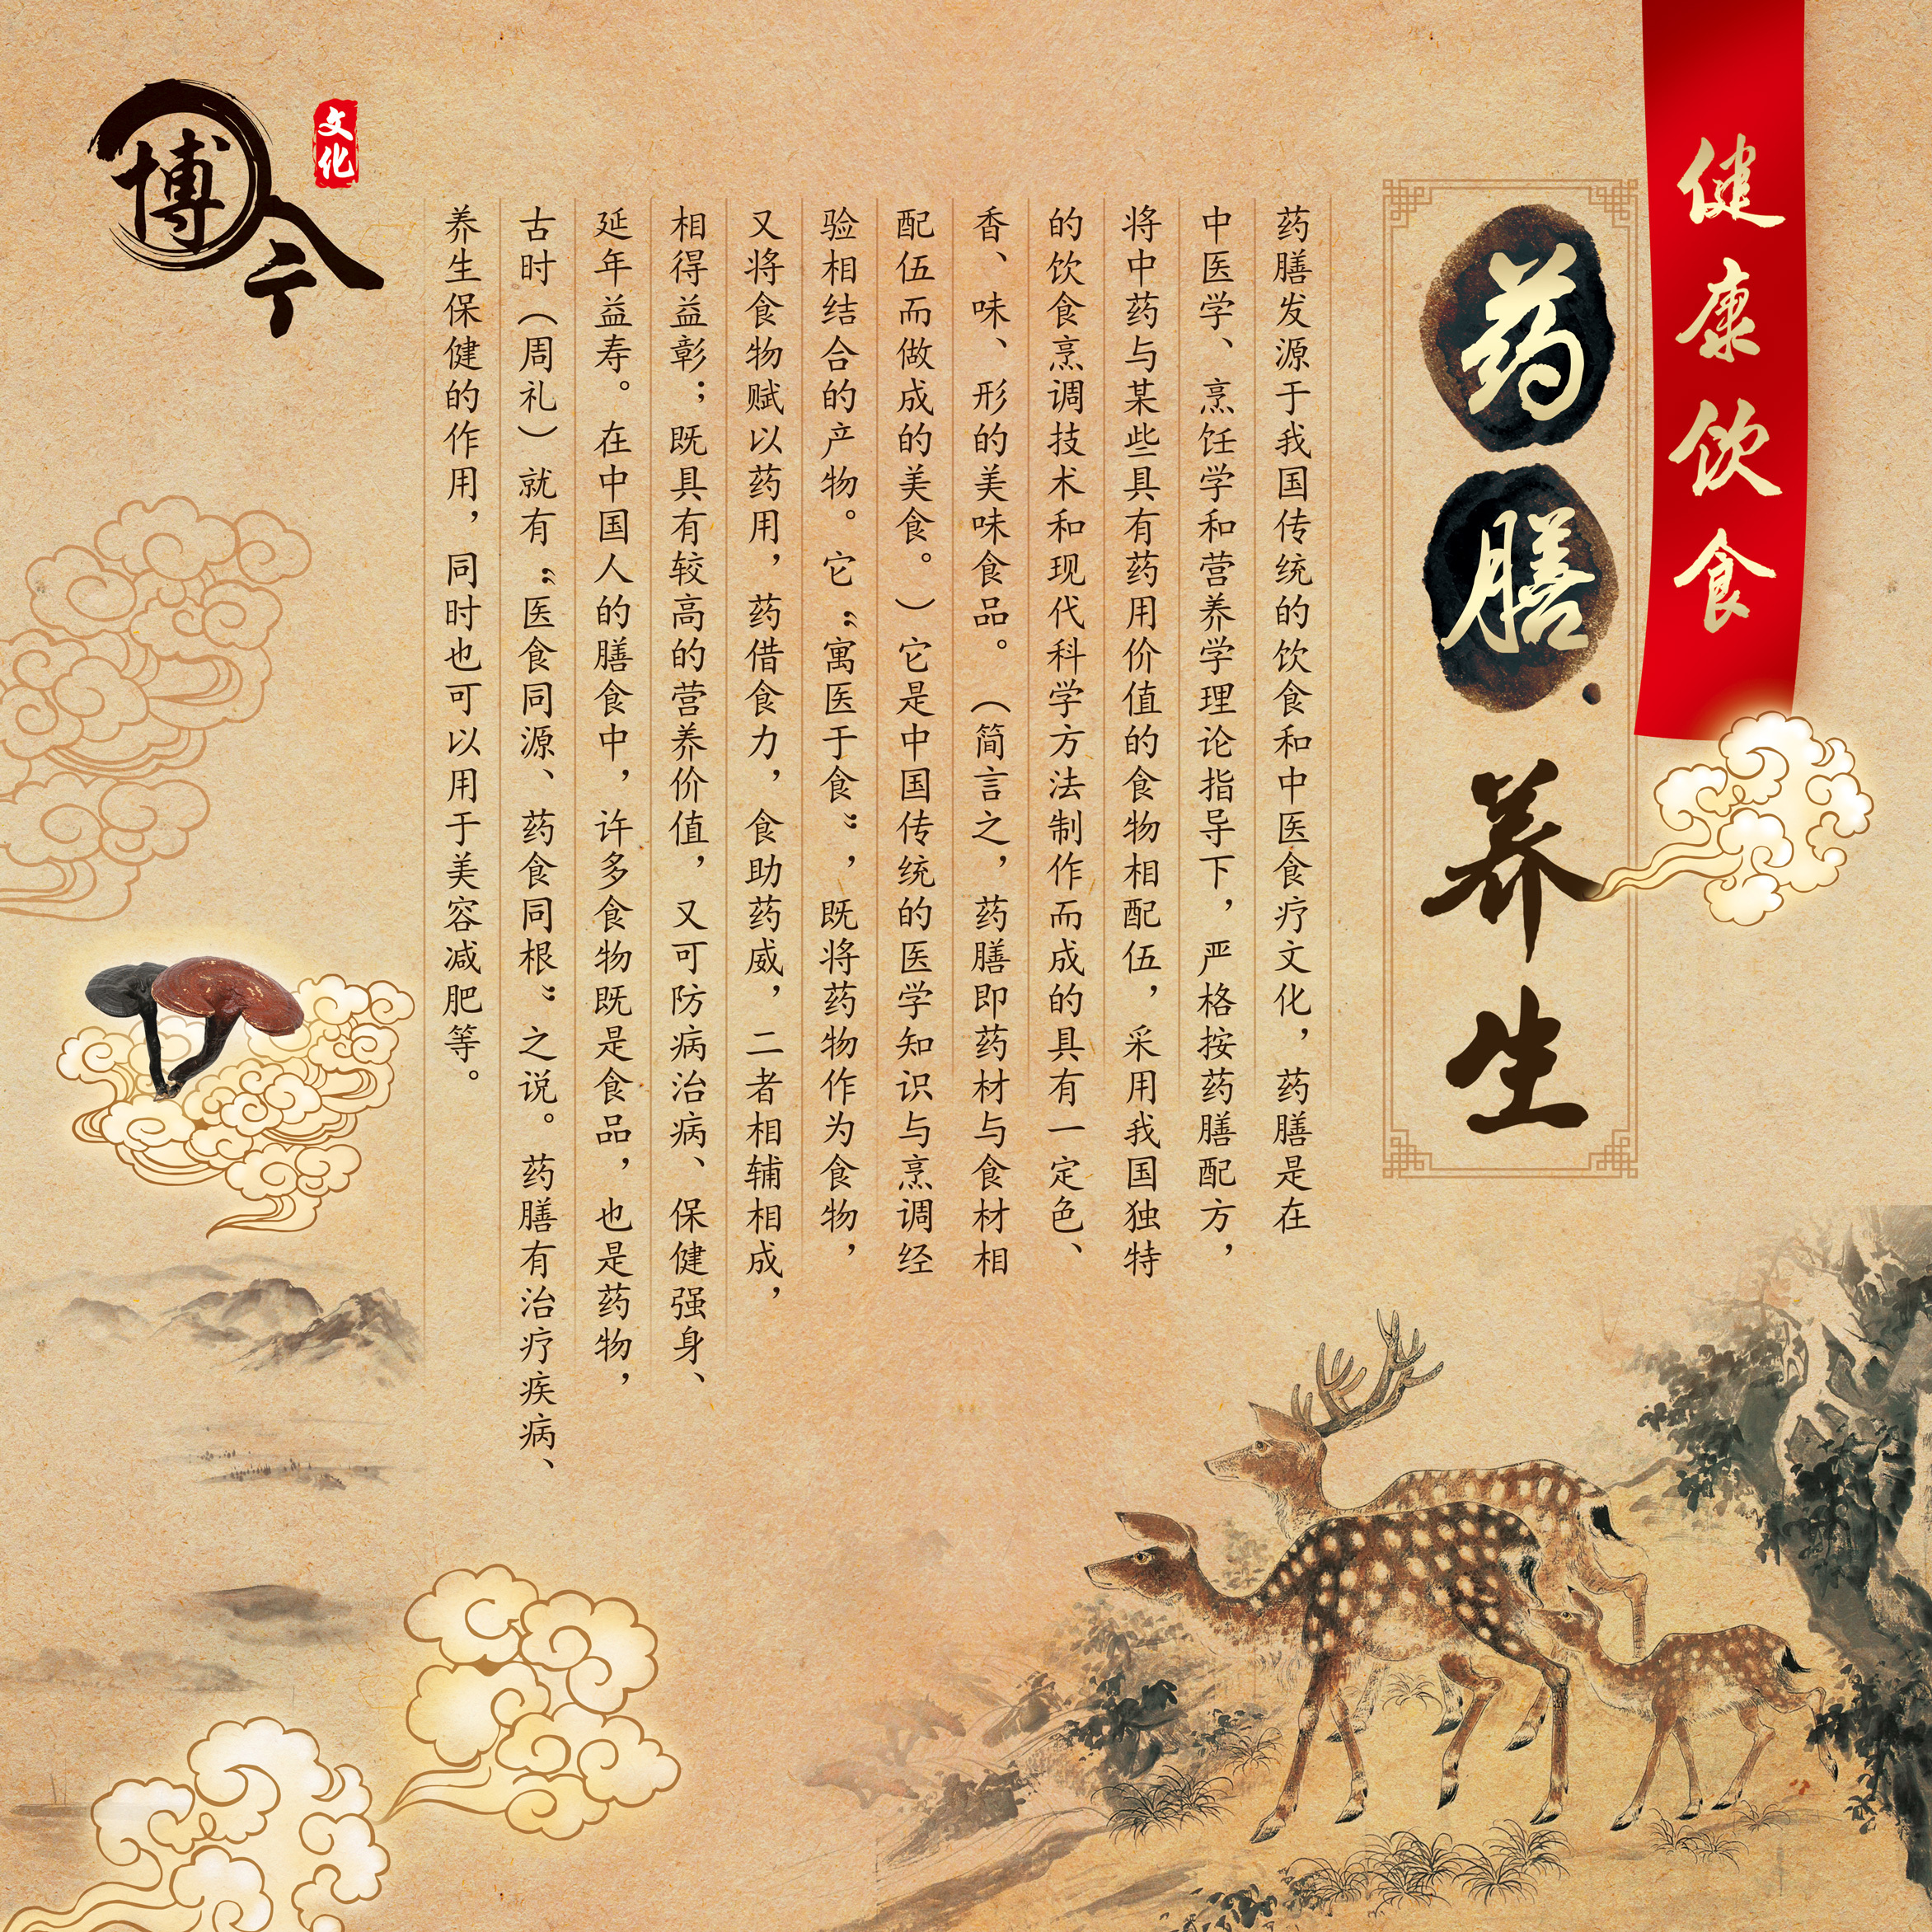 健康饮食
药膳养生
药膳发源于我国传统的饮食和中医食疗文化，药膳是在
中医学、烹饪学和营养学理论指导下，严格按药膳配方，
将中药与某些具有药用价值的食物相配伍，采用我国独特
的饮食烹调技术和现代科学方法制作而成的具有一定色、
香、味、形的美味食品。（简言之，药膳即药材与食材相
配伍而做成的美食。）它是中国传统的医学知识与烹调经
验相结合的产物。它“寓医于食”，既将药物作为食物，
又将食物赋以药用，药借食力，食助药威，二者相辅相成，
相得益彰；既具有较高的营养价值，又可防病治病、保健强身、
延年益寿。在中国人的膳食中，许多食物既是食品，也是药物，
古时（周礼）就有“医食同源、药食同根”之说。药膳有治疗疾病、
养生保健的作用，同时也可以用于美容减肥等。
博今
文化